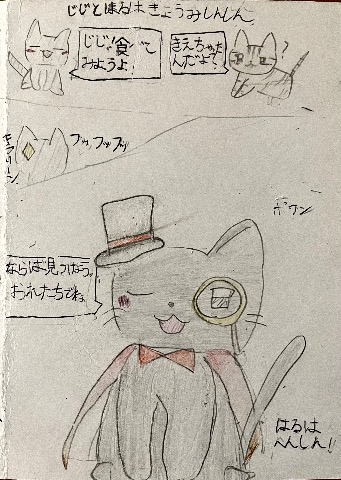 じじとはるはきょうみしんしん。
じじ「食べて
みようよ！
きえちゃった
んだよ？
?
フッフッフッ
ボワン
ならば見つけだそう。
おれたちでね。
はるは
へんしん！